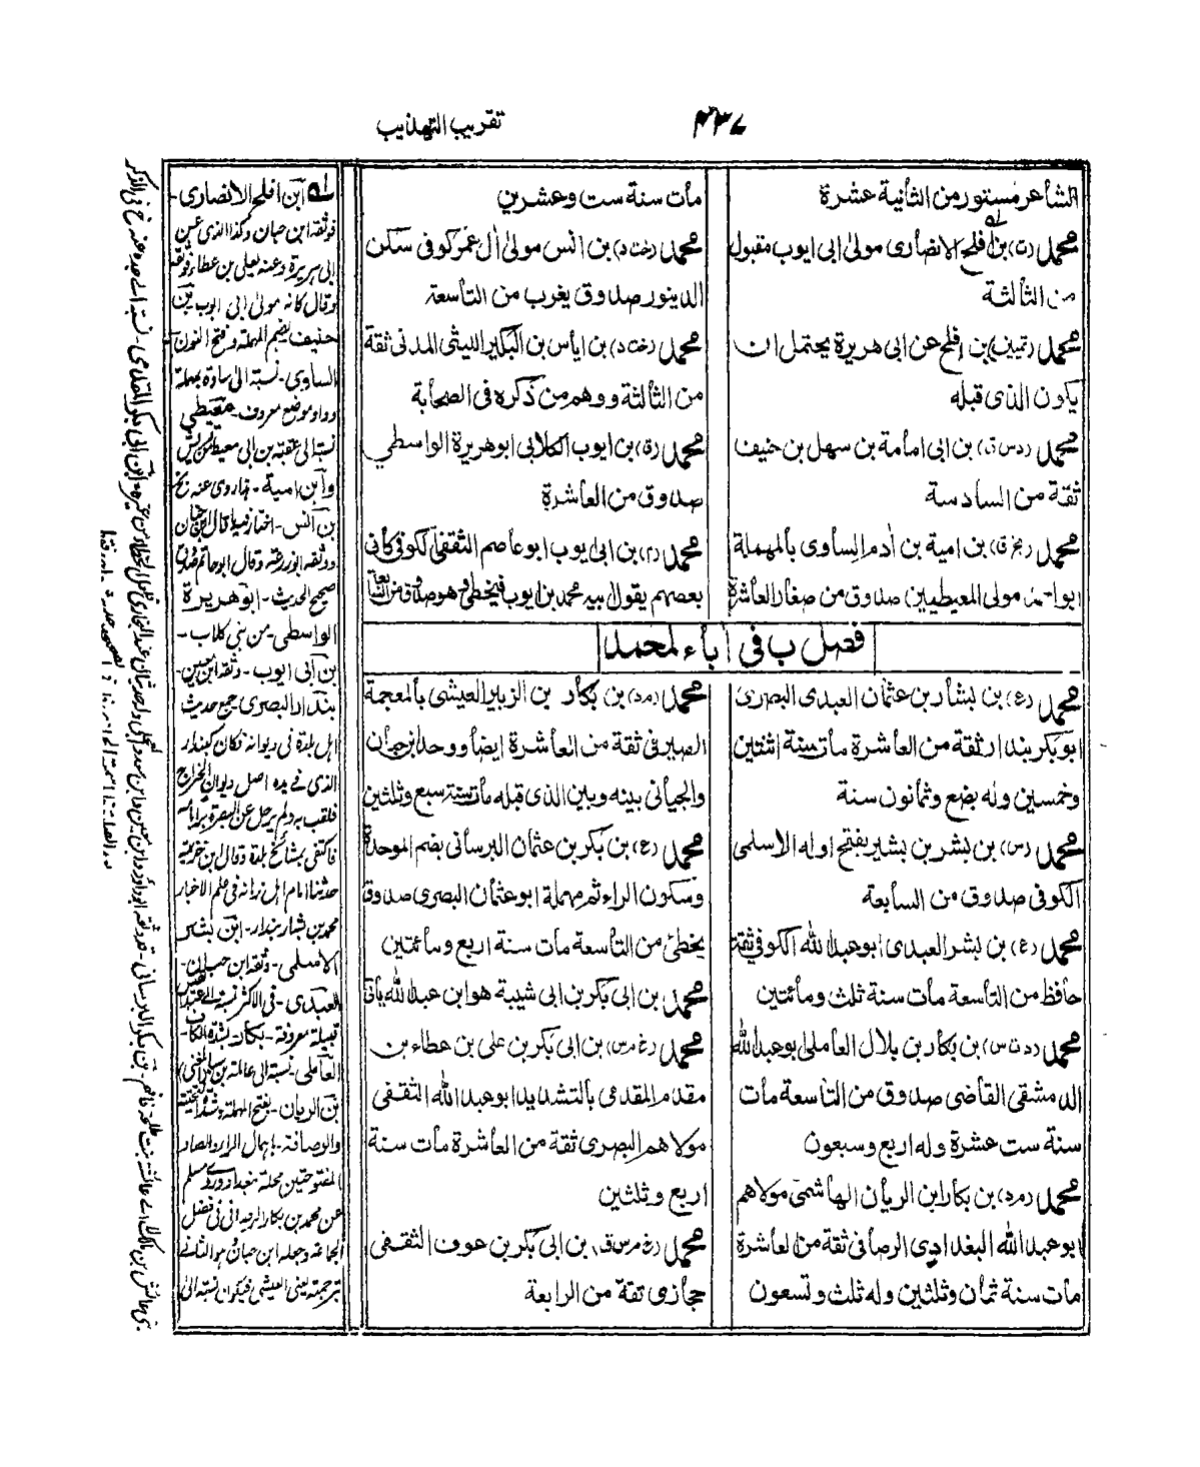 ۴۳۷
تقريب التهذيب
الشاعر مستور من الثانية عشرة
محمد (ت) بن افلح الانصارى مولى ابى ايوب مقبول
من الثالثة
محمد (تمييز) بن افلح عن ابى هريرة يحتمل ان
يكون الذى قبله
محمد (دس ق) بن ابى امامة بن سهل بن حنيف
ثقة من السادسة
محمد (بخ ق) بن امية بن أدم الساوى بالمهملة
مولى المعيطيين صدوق من صغار العاشرة
مات سنة ست وعشرين
محمد (خت د) بن انس مولى أل عمر كوفى سكن
الدينور صدوق يغرب من التاسعة
محمد (خت د) بن اياس بن البكير الليثى المدنى ثقة
من الثالثة ووهم من ذكره فى الصحابة
محمد (ق) بن ايوب الكلابى ابو هريرة الواسطي
صدوق من العاشرة
محمد (م) بن ابى ايوب ابو عاصم الثقفى الكوفى كانى
بعضهم يقول فيه محمد بن ايوب فيخطئ وهو صدوق من السابعة
فصل ب فى أباء لمحمد
محمد (ع) بن بشار بن عثمان العبدى البصرى
ابو بكر بندار ثقة من العاشرة مات سنة اثنتين
وخمسين وله بضع وثمانون سنة
محمد (س) بن بشر بن بشير بفتح اوله الاسلمى
الكوفى صدوق من السابعة
محمد (ع) بن بشر العبدى ابو عبد الله الكوفى ثقة
حافظ من التاسعة مات سنة ثلث ومائتين
محمد (د ت س) بن بكار بن بلال العاملى ابو عبد الله
الدمشقى القاضى صدوق من التاسعة مات
سنة ست عشرة وله اربع وسبعون
محمد (م د) بن بكار ابن الريان الهاشمى مولاهم
ابو عبد الله البغدادى الرصافى ثقة من العاشرة
مات سنة ثمان وثلثين وله ثلث وتسعون
محمد (م د) بن بكار بن الزبير العيشى بالمعجمة
الصيرفى ثقة من العاشرة ايضا ووحد ابن حبان
والجيانى بينه وبين الذى قبله مات سنة سبع وثلثين
محمد (ع) بن بكر بن عثمان البرسانى بضم الموحدة
وسكون الراء ثم مهملة ابو عثمان البصرى صدوق
يخطئ من التاسعة مات سنة اربع ومائتين
محمد بن ابى بكر بن ابى شيبة هو ابن عبد الله يأتى
محمد (خ م س) بن ابى بكر بن على بن عطاء بن
مقدم المقدمى بالتشديد ابو عبد الله الثقفى
مولاهم البصرى ثقة من العاشرة مات سنة
اربع وثلثين
محمد (خ م س ق) بن ابى بكر بن عوف الثقفى
حجازى ثقة من الرابعة
له ابن افلح الانصارى-
فوثقه ابن حبان وكذا الذى عن
ابى هريرة وعنه يعلى بن عطاء وثقه
وقال كانه مولى ابى ايوب بن
حنيف بضم المهملة وفتح النون
الساوى- نسبة الى ساوة بمهملة
وواو موضع معروف- معيطى
نسبة الى عقبة بن ابى معيط
وابن امية-
بن انس-
ووثقه ابو زرعة وقال ابو حاتم
صحيح الحديث- ابو هريرة
الواسطى- من بنى كلاب-
بن ابى ايوب- وثقه ابن معين-
بندار البصرى جمع حديث
اهل بلده فى ديوانه فكان كبندار
الذى فى يده اصل ديوان الخراج
فلقب به ولم يرحل عن البصرة برا بامه
فاكتفى بمشائخ بلده وقال ابن خزيمة
حدثنا امام اهل زمانه فى علم الاخبار
محمد بن بشار بندار- ابن بشر
الاسلمى- وثقه ابن حبان-
العبدى- فى الاكثر نسبة الى عبد القيس
قبيلة معروفة- بكار- بشدة الكاف
العاملى- نسبة الى عاملة بن سبا
بن الريان- بفتح المهملة وشدة التحتية
والرصافة- باهمال الراء والصاد
المفتوحتين محلة ببغداد وروى مسلم
عن محمد بن بكار الرصافى فى فضل
الجماعة وجعله ابن حبان
ترجمته يعنى العيشى فيكون نسبة الى